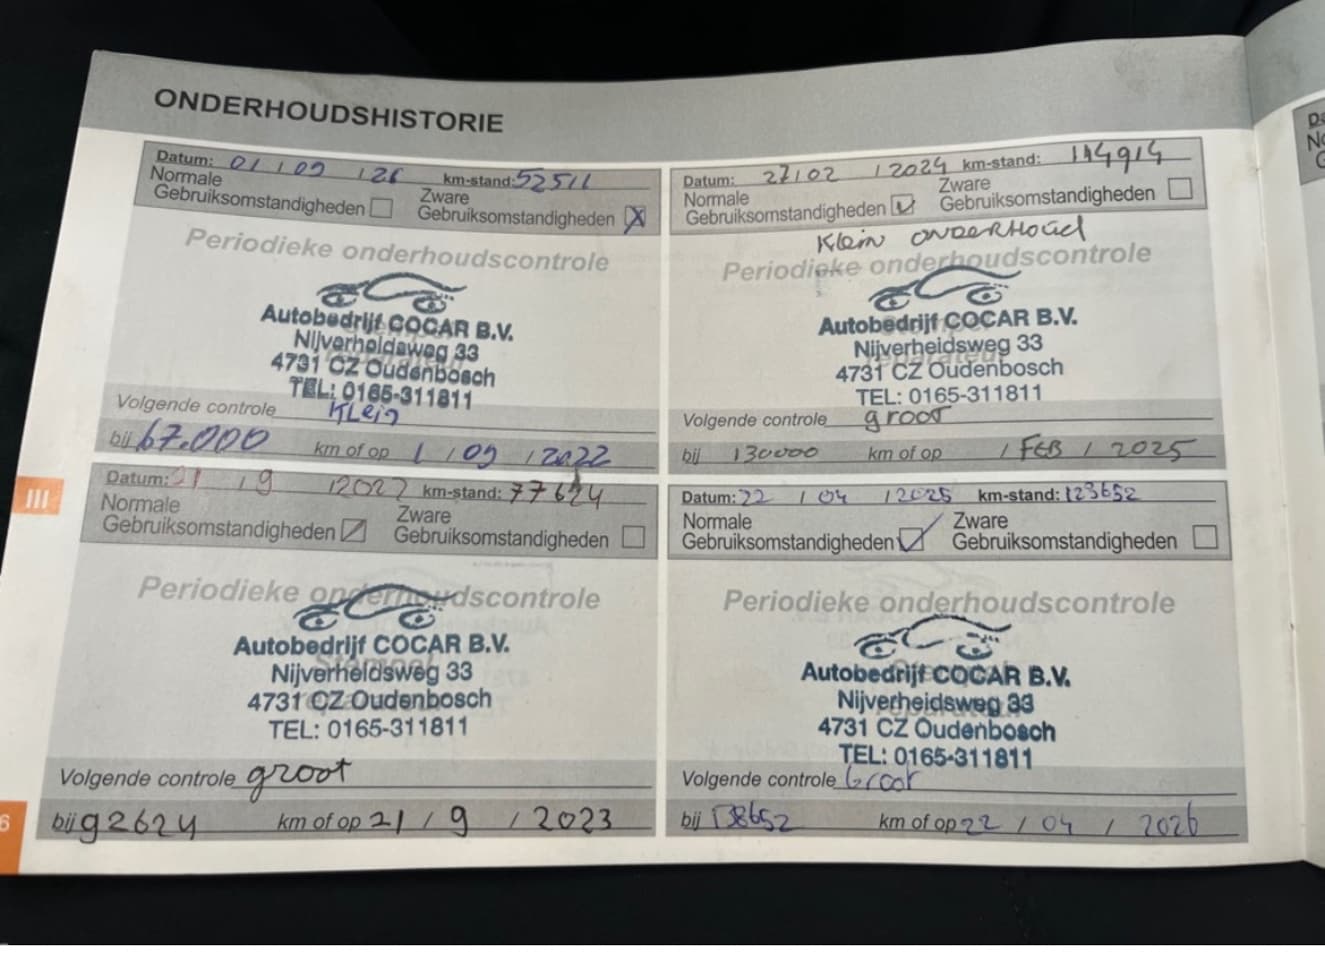 ONDERHOUDSHISTORIE
Datum: 01 / 09 / 21 km-stand: 52511
Normale Gebruiksomstandigheden
Zware Gebruiksomstandigheden X
Periodieke onderhoudscontrole
Autobedrijf COCAR B.V.
Nijverheidsweg 33
4731 CZ Oudenbosch
TEL: 0165-311811
Volgende controle Klein
bij 67.000 km of op 1 / 09 / 2022
Datum: 21 / 9 / 2022 km-stand: 77624
Normale Gebruiksomstandigheden
Zware Gebruiksomstandigheden
Periodieke onderhoudscontrole
Autobedrijf COCAR B.V.
Nijverheidsweg 33
4731 CZ Oudenbosch
TEL: 0165-311811
Volgende controle groot
bij 92624 km of op 21 / 9 / 2023
Datum: 27 / 02 / 2024 km-stand: 114914
Normale Gebruiksomstandigheden
Zware Gebruiksomstandigheden
Klein onderhoud
Periodieke onderhoudscontrole
Autobedrijf COCAR B.V.
Nijverheidsweg 33
4731 CZ Oudenbosch
TEL: 0165-311811
Volgende controle groot
bij 130000 km of op / FEB / 2025
Datum: 22 / 04 / 2025 km-stand: 123652
Normale Gebruiksomstandigheden
Zware Gebruiksomstandigheden
Periodieke onderhoudscontrole
Autobedrijf COCAR B.V.
Nijverheidsweg 33
4731 CZ Oudenbosch
TEL: 0165-311811
Volgende controle Groot
bij 138652 km of op 22 / 04 / 2026
III
6